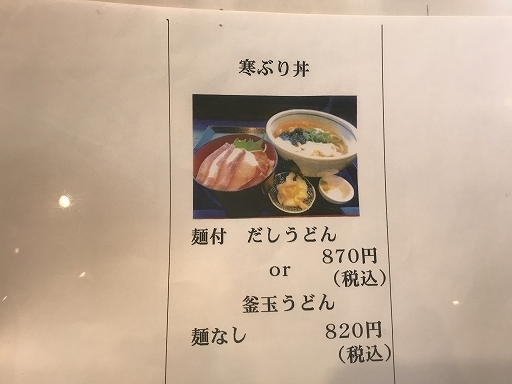 寒ぶり丼
麺付　だしうどん
870円
or
(税込)
釜玉うどん
麺なし　820円
(税込)